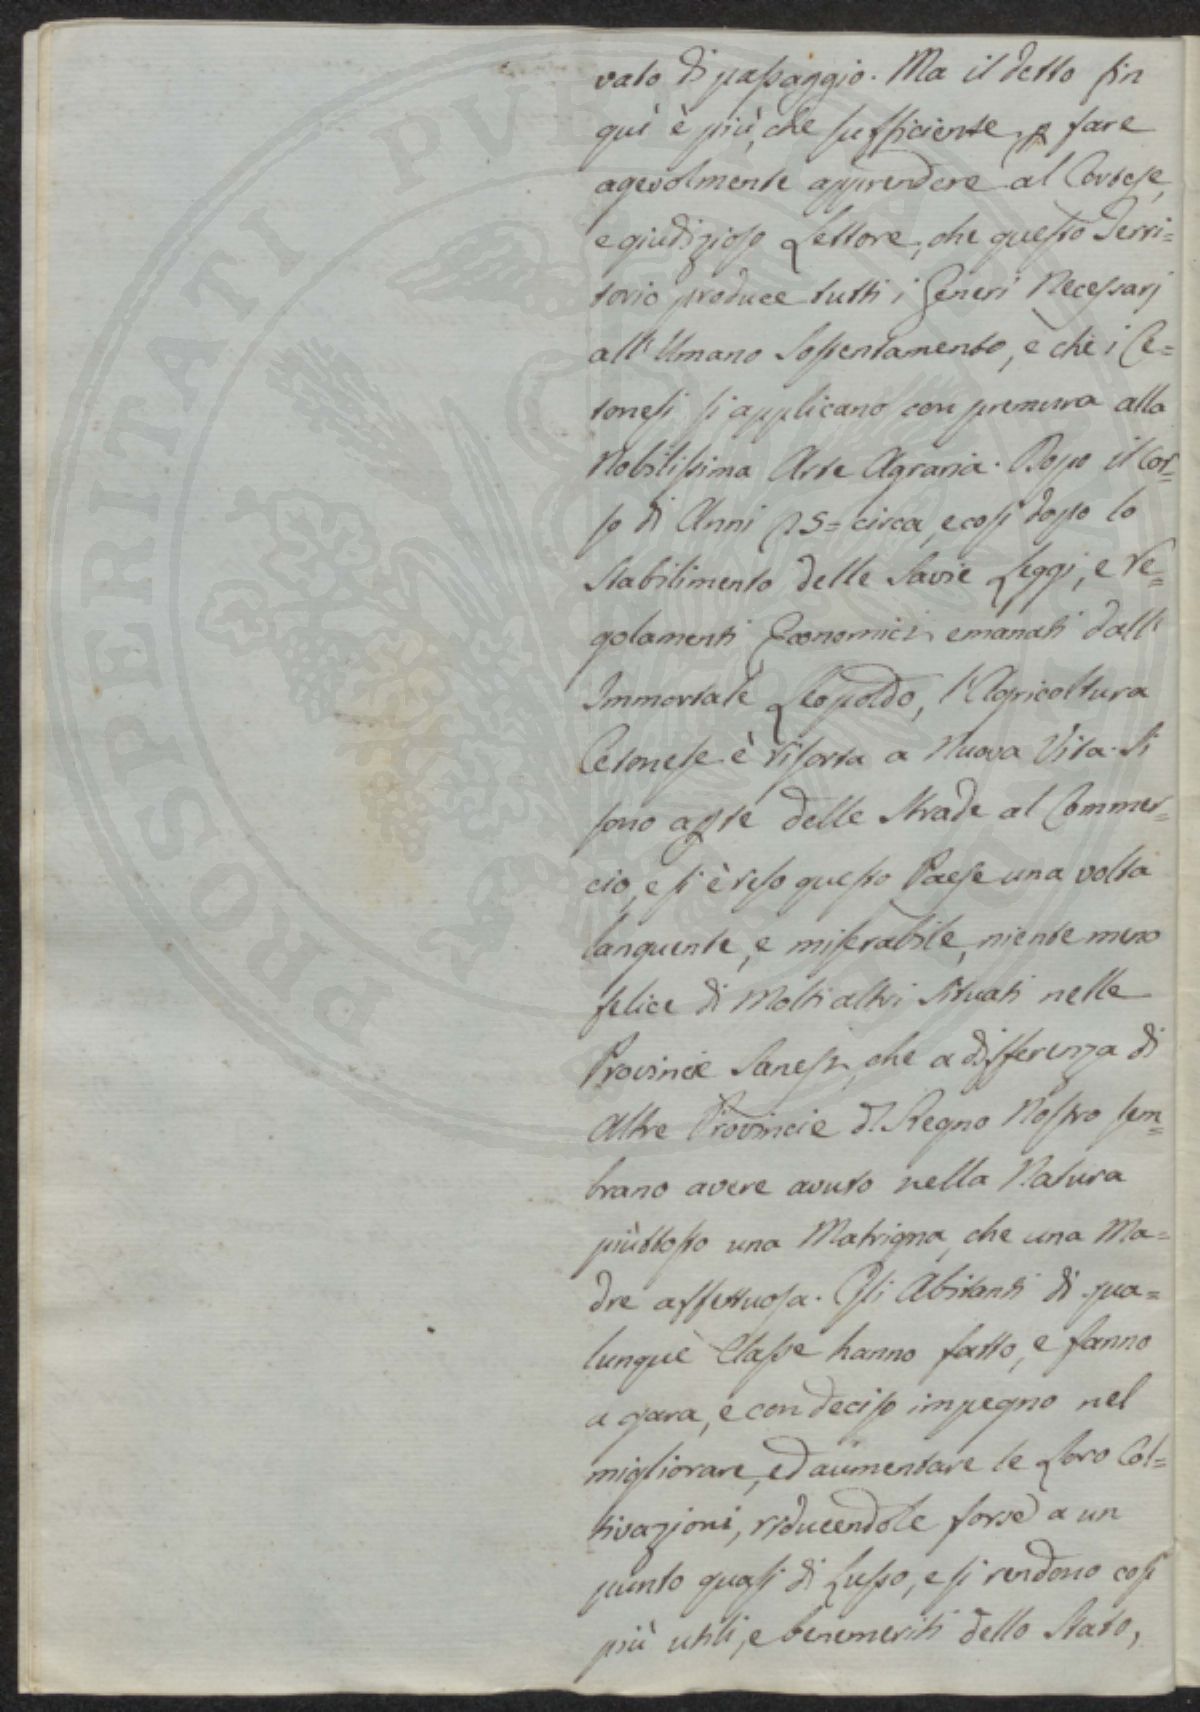 vato di passaggio. Ma il detto fin
quì è più, che sufficiente p fare
agevolmente apprendere al Cortese,
e giudizioso Lettore, che questo Terri=
torio produce tutti i Generi Necessarj
all' Umano Sostentamento, e che i Ce=
tonesi si applicano con premura alla
Nobilissima Arte Agraria. Dopo il Cor=
so di Anni 25= circa, e così dopo lo
Stabilimento delle Savie Leggi, e re=
golamenti Economici emanati dall'
Immortale Leopoldo, l'Agricoltura
Cetonese è risorta a Nuova Vita. Si
sono apte delle Strade al Commer=
cio, e si è reso questo Paese una volta
languente, e miserabile, niente meno
felice di Molti altri Situati nelle
Provincie Sanesi, che a differenza di
Altre Provincie dl Regno Nostro sem=
brano avere avuto nella Natura
piùttosto una Matrigna, che una Ma=
dre affettuosa. Gli Abitanti di qua=
lunque Classe hanno fatto, e fanno
a gara, e con deciso impegno nel
migliorare, ed aumentare le Loro Col=
tivazioni, riducendole forse a un
punto quasi di Lusso, e si rendono così
più utili, e benemeriti dello Stato,
PROSPERITATI